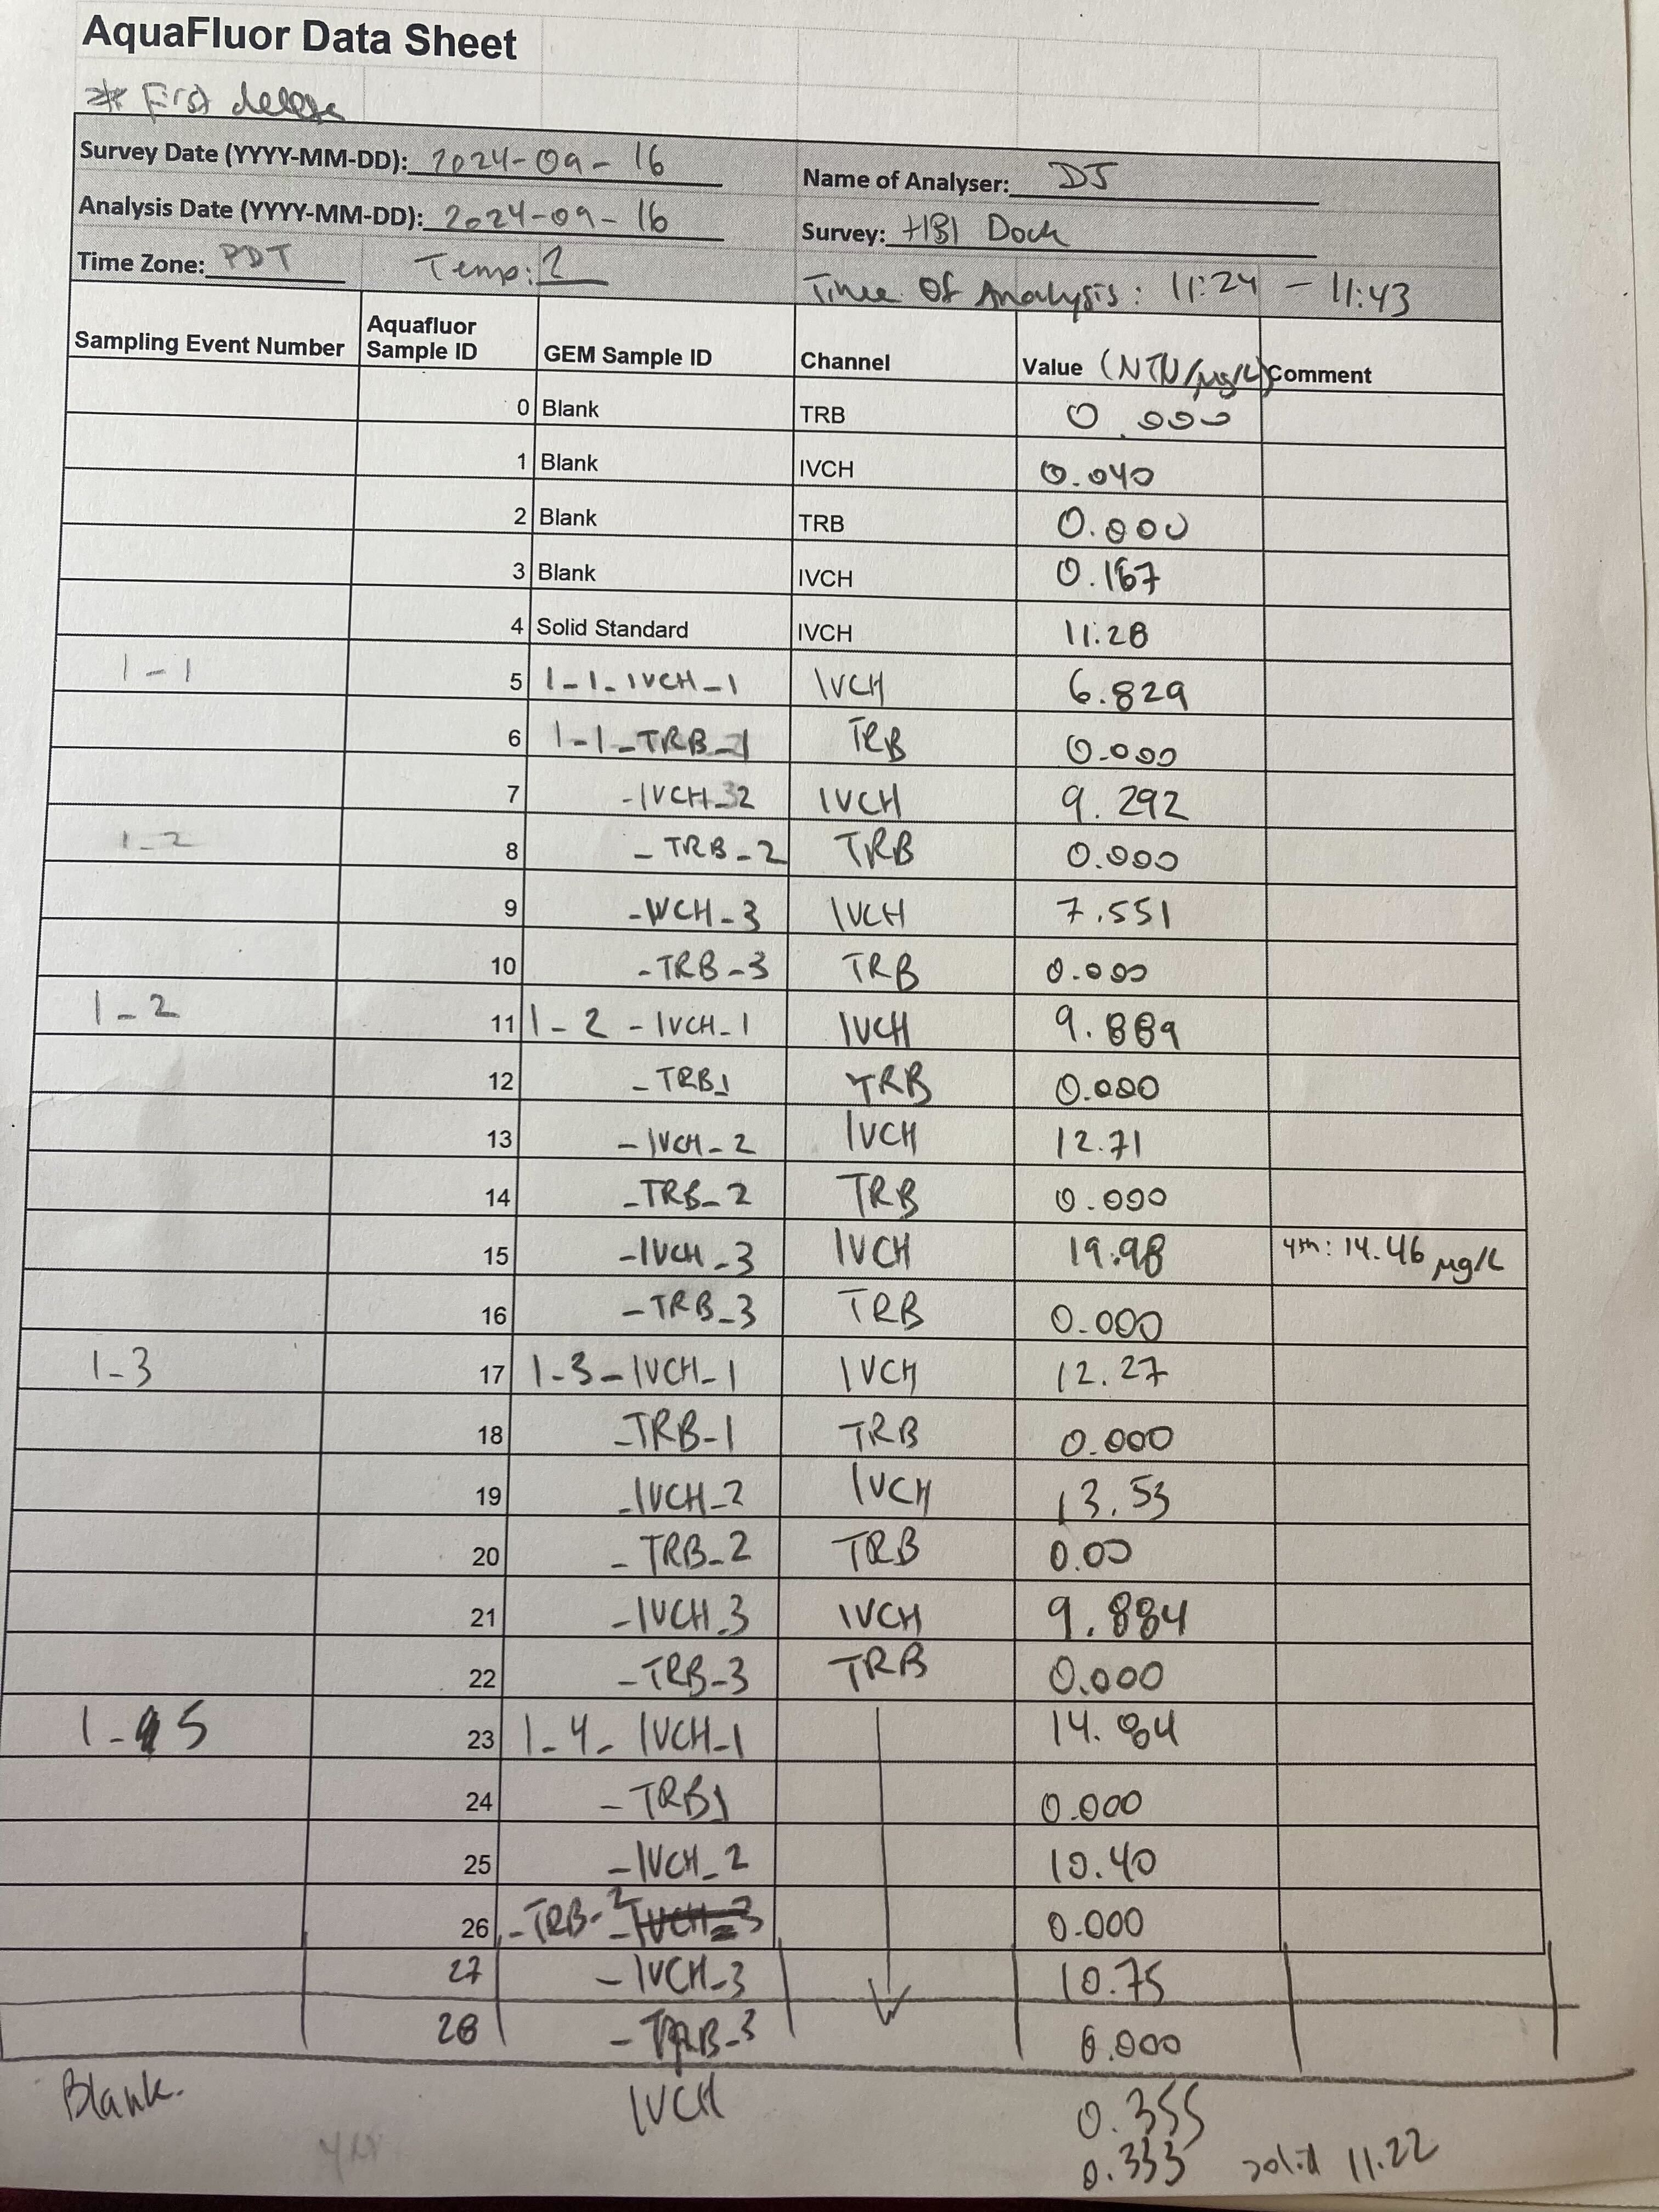 AquaFluor Data Sheet
* First
Survey Date (YYYY-MM-DD): 2024-09-16 Name of Analyser: DJ
Analysis Date (YYYY-MM-DD): 2024-09-16 Survey: HBI Dock
Time Zone: PDT Temp: Time Of Analysis: 11:24 - 11:43
Sampling Event Number Aquafluor Sample ID GEM Sample ID Channel Value (NTU/µg/L) Comment
0 Blank TRB 0.000
1 Blank IVCH 0.040
2 Blank TRB 0.000
3 Blank IVCH 0.167
4 Solid Standard IVCH 11.28
1-1 5 1_1_IVCH_1 IVCH 6.829
6 1-1_TRB_1 TRB 0.000
7 -IVCH_2 IVCH 9.292
1_2 8 _TRB_2 TRB 0.000
9 -IVCH_3 IVCH 7.551
10 -TRB_3 TRB 0.000
1_2 11 1_2_IVCH_1 IVCH 9.889
12 _TRB1 TRB 0.000
13 _IVCH_2 IVCH 12.71
14 _TRB_2 TRB 0.000
15 _IVCH_3 IVCH 19.98 4th: 14.46 µg/L
16 _TRB_3 TRB 0.000
1_3 17 1_3_IVCH_1 IVCH 12.27
18 _TRB-1 TRB 0.000
19 _IVCH_2 IVCH 13.53
20 _TRB_2 TRB 0.00
21 _IVCH_3 IVCH 9.884
22 _TRB_3 TRB 0.000
1_5 23 1_4_IVCH_1 14.84
24 _TRB1 0.000
25 _IVCH_2 10.40
26 _TRB-2 0.000
27 _IVCH_3 10.75
28 _TRB_3 0.000
Blank. IVCH 0.355
0.333 solid 11.22